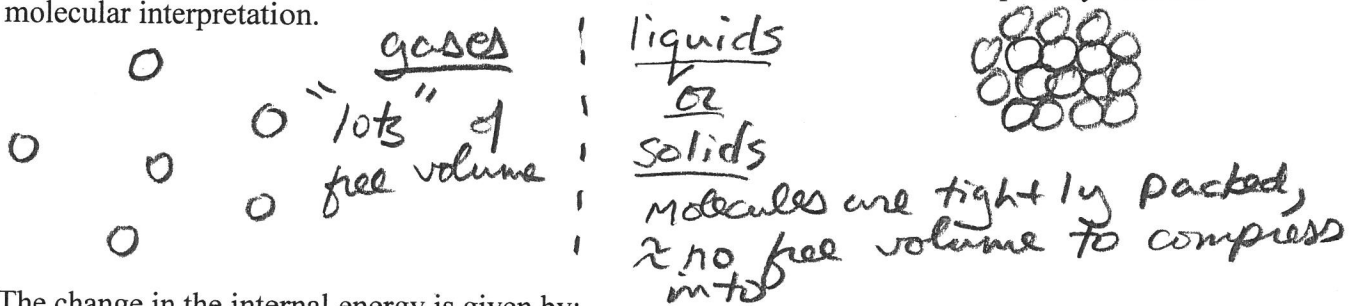 molecular interpretation.
gases
"lots" of
free volume
liquids
or
solids
Molecules are tightly packed,
≈ no free volume to compress
into
The change in the internal energy is given by: